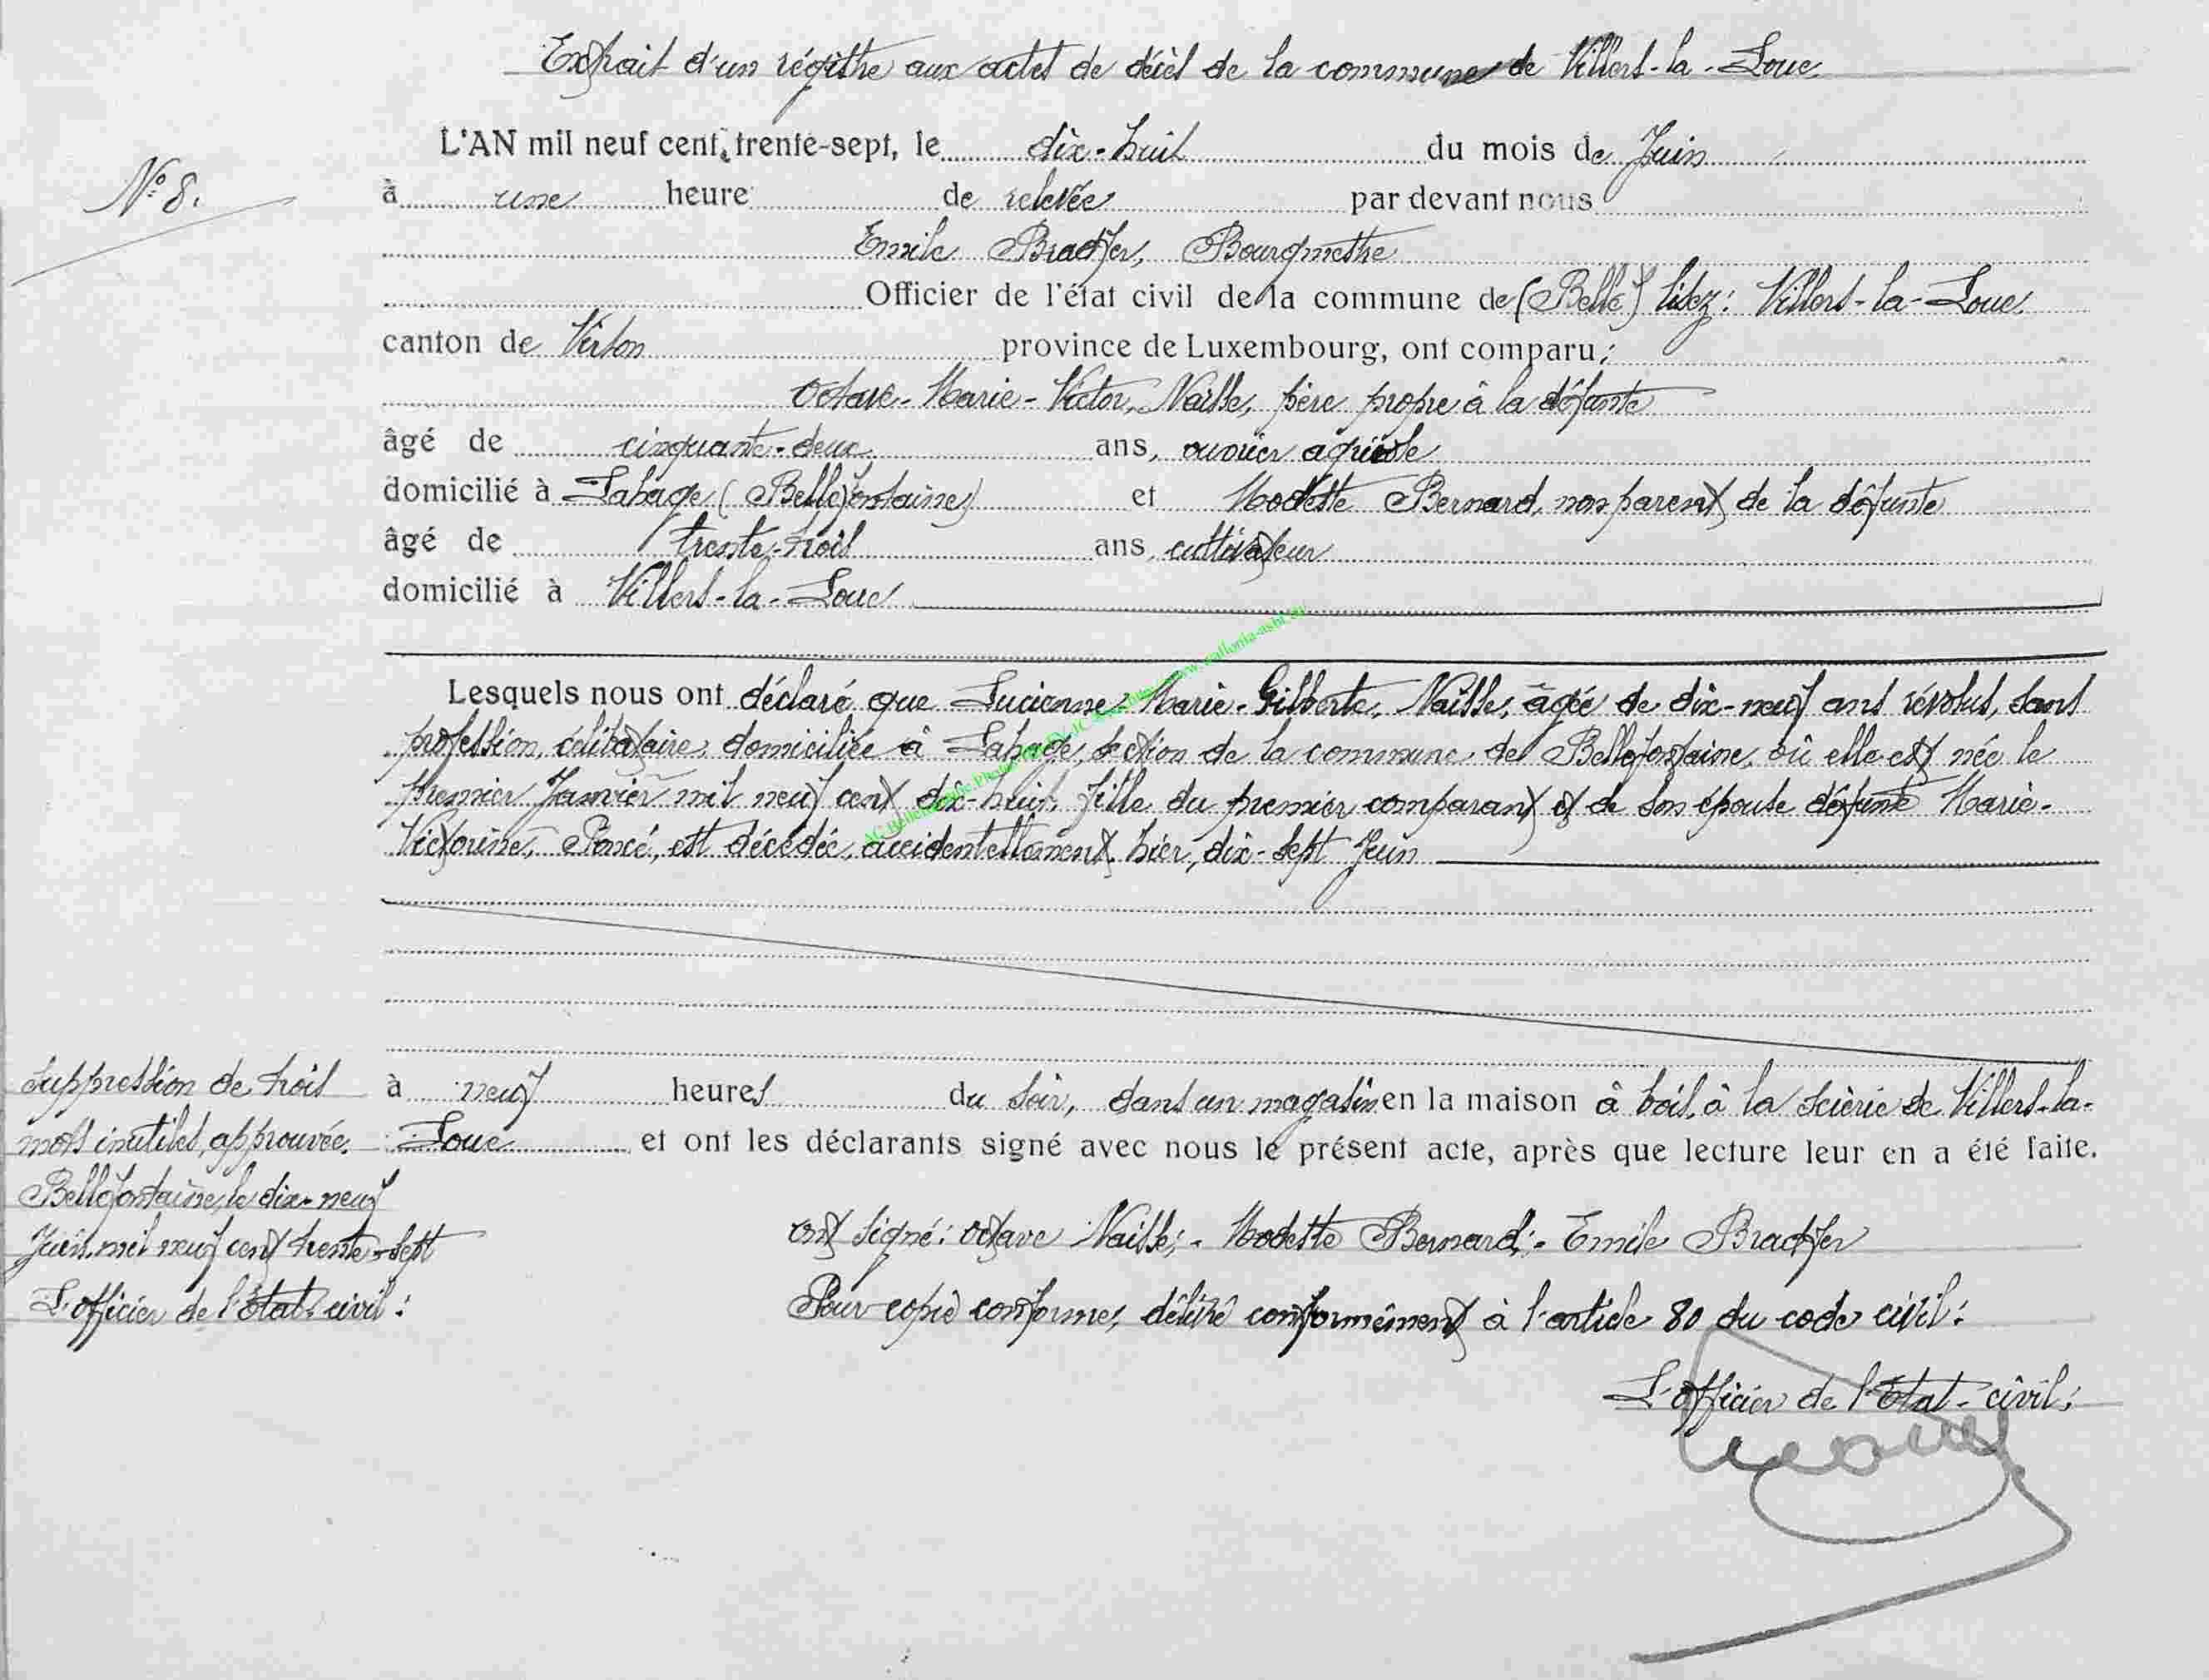 Extrait d'un régistre aux actes de décès de la commune de Villers-la-Loue
L'AN mil neuf cent trente-sept, le dix-huit du mois de Juin
N° 8.
à une heure de relevée par devant nous
Emile Bradfer, Bourgmestre
Officier de l'état civil de la commune de (Belle) lisez: Villers-la-Loue.
canton de Virton province de Luxembourg, ont comparu:
Octave-Marie-Victor, Naisse, père propre à la défunte
âgé de cinquante-deux ans, ouvrier agricole
domicilié à Lahage (Bellefontaine) et Modeste Bernard, non parent de la défunte
âgé de trente-trois ans, cultivateur
domicilié à Villers-la-Loue
Lesquels nous ont déclaré que Lucienne-Marie-Gilberte, Naisse, âgée de dix-neuf ans révolus, sans
profession, célibataire, domiciliée à Lahage, section de la commune de Bellefontaine, où elle est née le
premier Janvier mil neuf cent dix-huit, fille du premier comparant et de son épouse défunte Marie-
Victorine, Poncé, est décédée, accidentellement, hier, dix-sept Juin
à neuf heures du soir, dans un magasin en la maison à bois, à la scierie de Villers-la-
Loue et ont les déclarants signé avec nous le présent acte, après que lecture leur en a été faite.
Suppression de trois
mots inutiles, approuvée.
Bellefontaine, le dix-neuf
Juin mil neuf cent trente-sept
L'officier de l'Etat-civil:
ont signé: Octave Naisse;- Modeste Bernard;- Emile Bradfer
Pour copie conforme, délivré conformément à l'article 80 du code civil:
L'officier de l'Etat-civil: